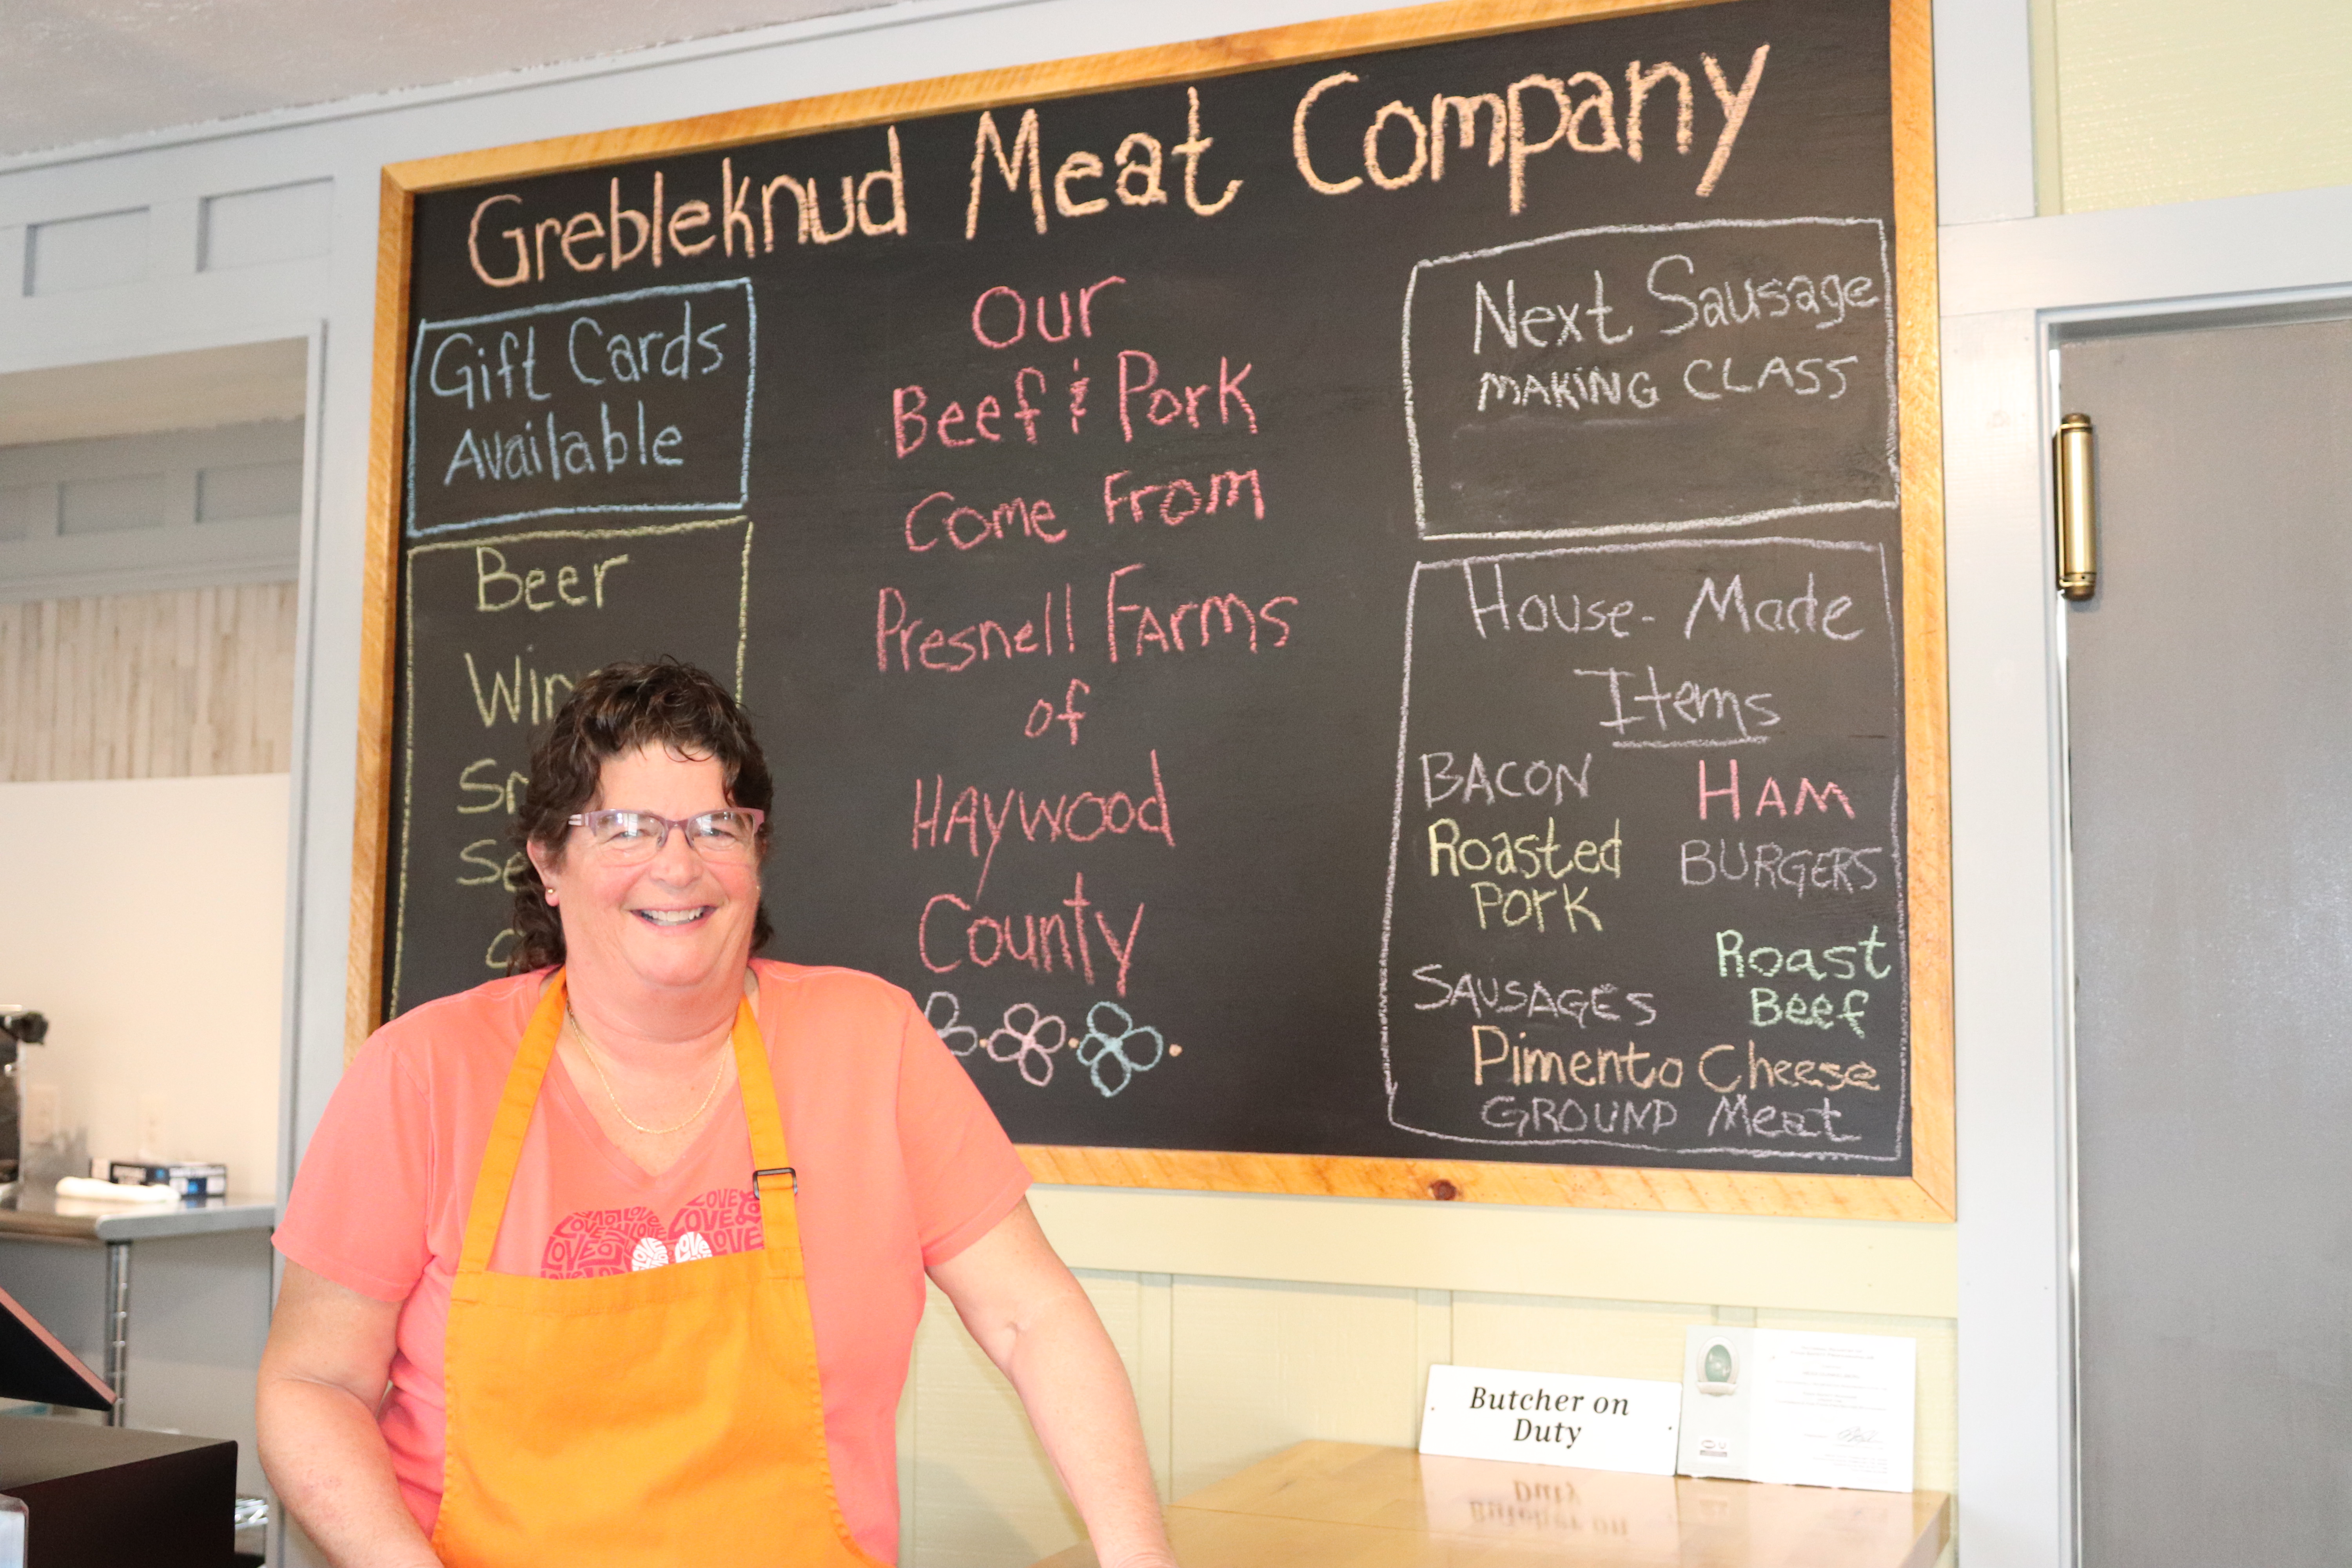 Grebleknud Meat Company
Gift Cards
Available
Beer
Our
Beef & Pork
Come From
Presnell Farms
of
Haywood
County
Next Sausage
MAKING CLASS
House-Made
Items
BACON
HAM
Roasted
Pork
BURGERS
Roast
Beef
SAUSAGES
Pimento Cheese
GROUND Meat
LOVE LOVE
LOVE LOVE
LOVE LOVE
Butcher on
Duty